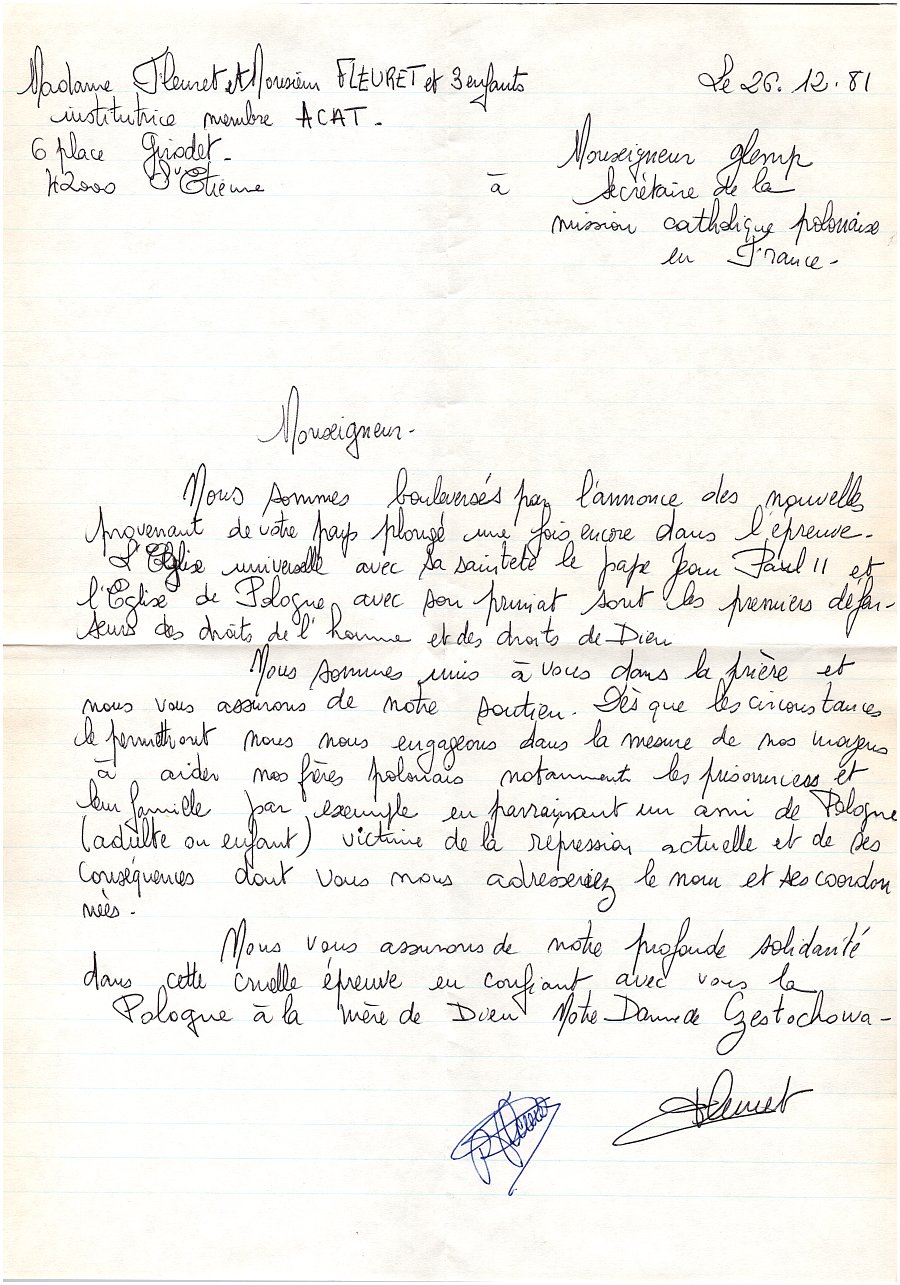 Madame Fleuret et Monsieur FLEURET et 3 enfants
institutrice membre ACAT -
6 place Girodet -
42000 St Etienne
Le 26.12.81
Monseigneur Glemp
à Secrétaire de la
mission catholique polonaise
en France -
Monseigneur -
Nous sommes bouleversés par l'annonce des nouvelle
provenant de votre pays plongé une fois encore dans l'épreuve -
L'Eglise universelle avec sa sainteté le pape Jean Paul II et
l'Eglise de Pologne avec son primat sont les premiers défen-
seurs des droits de l'homme et des droits de Dieu
Nous sommes unis à vous dans la prière et
nous vous assurons de notre soutien. Dès que les circonstances
le permettront nous nous engageons dans la mesure de nos moyens
à aider nos frères polonais notamment les prisonniers et
leur famille par exemple en parrainant un ami de Pologne
(adulte ou enfant) victime de la répression actuelle et de ses
conséquences dont vous nous adresseriez le nom et ses coordon
nées -
Nous vous assurons de notre profonde solidarité
dans cette cruelle épreuve en confiant avec vous la
Pologne à la mère de Dieu Notre Dame de Czestochowa -
Fleuret